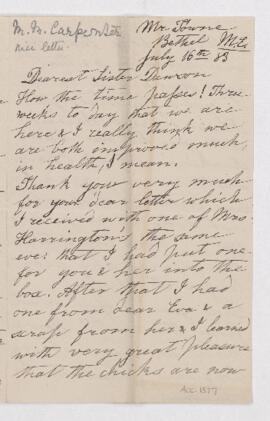 M. B. Carpenter
nice letter
Mr. Towne
Bethel Me.
July 16th 83
Dearest Sister Dawson
How the time passes! Three
weeks to day that we are
here & I really think we
are both improved much,
in health, I mean.
Thank you very much
for your dear letter which
I received with one of Mrs.
Harrington's the same
eve: that I had put one
for you & her into the
box. After that I had
one from dear Eva & a
scrap from her & I learned
with very great pleasure
that the chicks are now
Acc. 1577